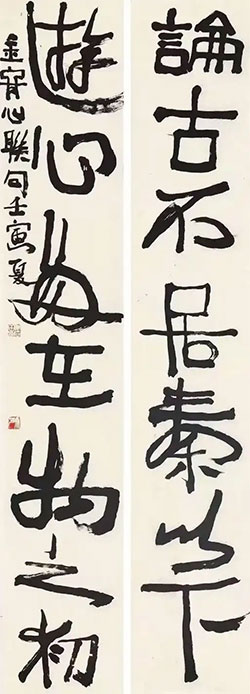 論古不居秦以下
遊心每在物之初
金心聯句壬寅夏